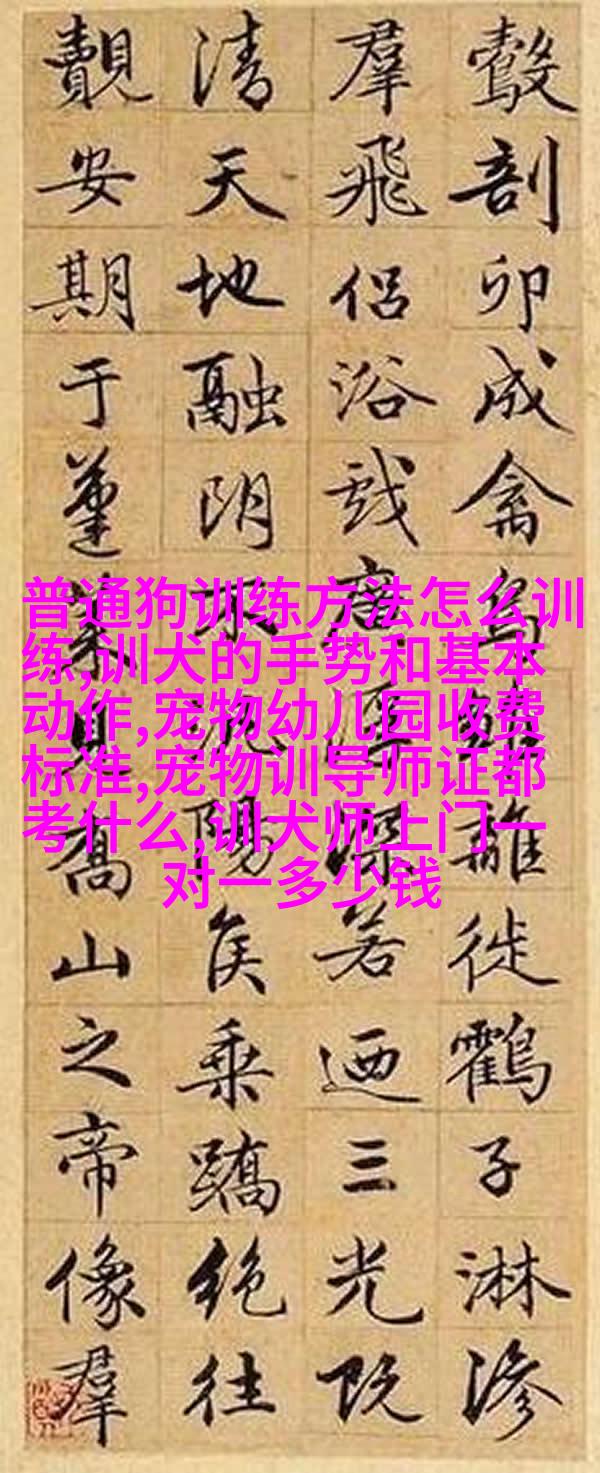 鷇剖卵成禽離徙鸖子淋滲
羣飛侣浴戲廣浮深若迺三光既
清天地融朗不汎陽矦乘蹻絶往
覿安期于蓬萊見喬山之帝像羣
普通狗训练方法怎么训
练,训犬的手势和基本
动作,宠物幼儿园收费
标准,宠物训导师证都
考什么,训犬师上门一
对一多少钱